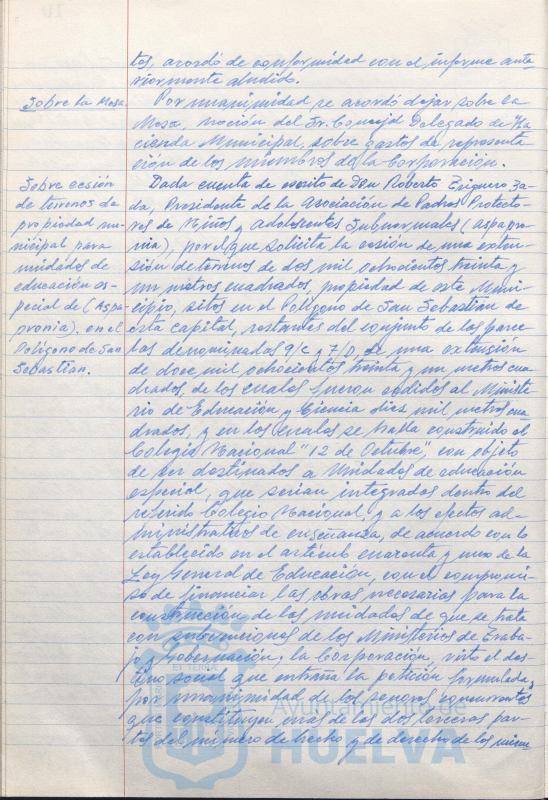 tes, acordó de conformidad con el informe ante
riormente aludido.
Sobre la Mesa
Por unanimidad se acordó dejar sobre la
Mesa, moción del Sr. Concejal Delegado de Ha
cienda Municipal, sobre gastos de representa
ción de los miembros de la Corporación.
Sobre cesión
de terrenos de
propiedad mu-
nicipal para
unidades de
educación es-
pecial de (Aspa
pronia), en el
Polígono de San
Sebastian.
Dada cuenta de escrito de Don Roberto
da, Presidente de la Asociación de Padres Protecto-
res de Niños y Adolescentes Subnormales (Aspapro-
nia), por el que solicita la cesión de una exten-
sión de terrenos de dos mil ochocientos treinta y
un metros cuadrados, propiedad de este Muni-
cipio, sitos en el Polígono de San Sebastian de
esta capital, restantes del conjunto de las parce
las denominadas 9/C y 7/D, de una extensión
de doce mil ochocientos treinta y un metros cua
drados, de los cuales fueron cedidos al Ministe
rio de Educación y Ciencia diez mil metros cua
drados, y en los cuales se halla construido el
Colegio Nacional "12 de Octubre", con objeto
de ser destinados a Unidades de educación
especial, que serian integradas dentro del
referido Colegio Nacional, y a los efectos ad-
ministrativos de enseñanza, de acuerdo con lo
establecido en el artículo cuarenta y uno de la
Ley General de Educación, con el compromi-
so de financiar las obras necesarias para la
construcción de las unidades de que se trata
con subvenciones de los Ministerios de Traba-
jo y Gobernación; la Corporación, visto el des-
tino social que entraña la petición formulada,
por unanimidad de los señores concurrentes
que constituyen más de las dos terceras par-
tes del número de hecho y de derecho de los miem
Ayuntamiento de
HUELVA